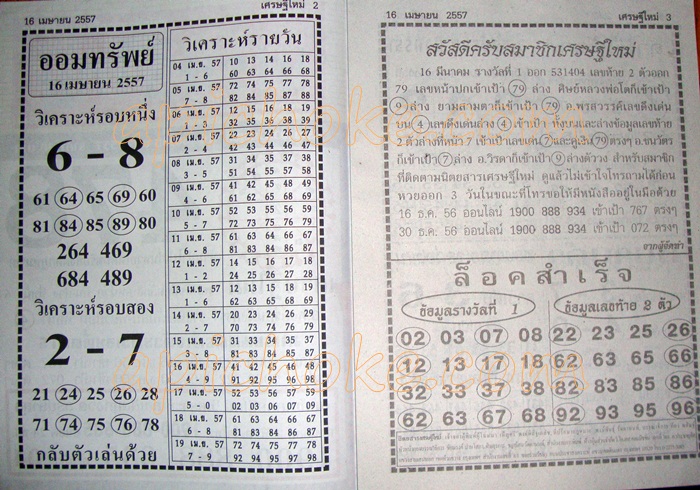 16 เมษายน 2557
เศรษฐีใหม่ 2
ออมทรัพย์
16 เมษายน 2557
วิเคราะห์รอบหนึ่ง
6 - 8
61 64 65 69 60
81 84 85 89 80
264 469
684 489
วิเคราะห์รอบสอง
2 - 7
21 24 25 26 28
71 74 75 76 78
กลับตัวเล่นด้วย
วิเคราะห์รายวัน
04 เม.ย. 57 10 13 14 16 18
1 - 6 60 63 64 66 68
05 เม.ย. 57 72 74 75 77 78
7 - 8 82 84 85 87 88
06 เม.ย. 57 12 15 16 18 19
1 - 3 32 35 36 38 39
07 เม.ย. 57
08 เม.ย. 57 31 34 35 37 38
3 - 5 51 54 55 57 58
09 เม.ย. 57 41 42 43 45 48
4 - 6 61 62 63 65 68
10 เม.ย. 57 52 53 55 56 59
5 - 7 72 73 75 76 79
11 เม.ย. 57 61 63 64 66 67
6 - 8 81 83 84 86 87
12 เม.ย. 57
1 - 2
13 เม.ย. 57 12 13 15 17 19
1 - 6 62 63 65 67 69
14 เม.ย. 57 20 23 24 26 29
70 73 74 76 79
15 เม.ย. 57 31 33 34 35 37
3 - 8 81 83 84 85 87
16 เม.ย. 57 41 42 45 46 48
4 - 9 91 92 95 96 98
17 เม.ย. 57 52 53 56 57 59
5 - 0 02 03 06 07 09
18 เม.ย. 57 61 63 64 66 67
6 - 8 81 83 84 86 87
19 เม.ย. 57 72 74 75 77 78
7 - 9 92 94 95 97 98
16 เมษายน 2557
เศรษฐีใหม่ 3
สวัสดีครับสมาชิกเศรษฐีใหม่
16 มีนาคม รางวัลที่ 1 ออก 531404 เลขท้าย 2 ตัวออก
79 เลขหน้าปกเข้าเป้า 79 ล่าง ศิษย์หลวงพ่อโตก็เข้าเป้า
9 ล่าง ยามสามตาก็เข้าเป้า 79 อ.พรสวรรค์เลขดึงเด่น
บน 4 เลขดึงเด่นล่าง 4 เข้าเป้า ทั้งบนและล่างข้อมูลเลขท้าย
2 ตัวล่างที่หน้า 7 เข้าเป้าเลขเด่น 7 และคู่เงิน 79 ตรงๆ อ.ชนวัตร
ก็เข้าเป้า 7 ล่าง อ.วิรดาก็เข้าเป้า 9 ล่างด้วย สำหรับสมาชิก
ที่ติดตามนิตยสารเศรษฐีใหม่ ดูแล้วไม่เข้าใจโทรถามได้ก่อน
หวยออก 3 วันในขณะที่โทรขอให้มีหนังสืออยู่ในมือด้วย
16 ธ.ค. 56 ออนไลน์ 1900 888 934 เข้าเป้า 767 ตรงๆ
30 ธ.ค. 56 ออนไลน์ 1900 888 934 เข้าเป้า 072 ตรงๆ
จากผู้จัดทำ
ล็อคสำเร็จ
ข้อมูลรางวัลที่ 1
ข้อมูลเลขท้าย 2 ตัว
02 03 07 08 22 23 25 26
12 13 17 18 62 63 65 66
32 33 37 38 82 83 85 86
62 63 67 68 92 93 95 96